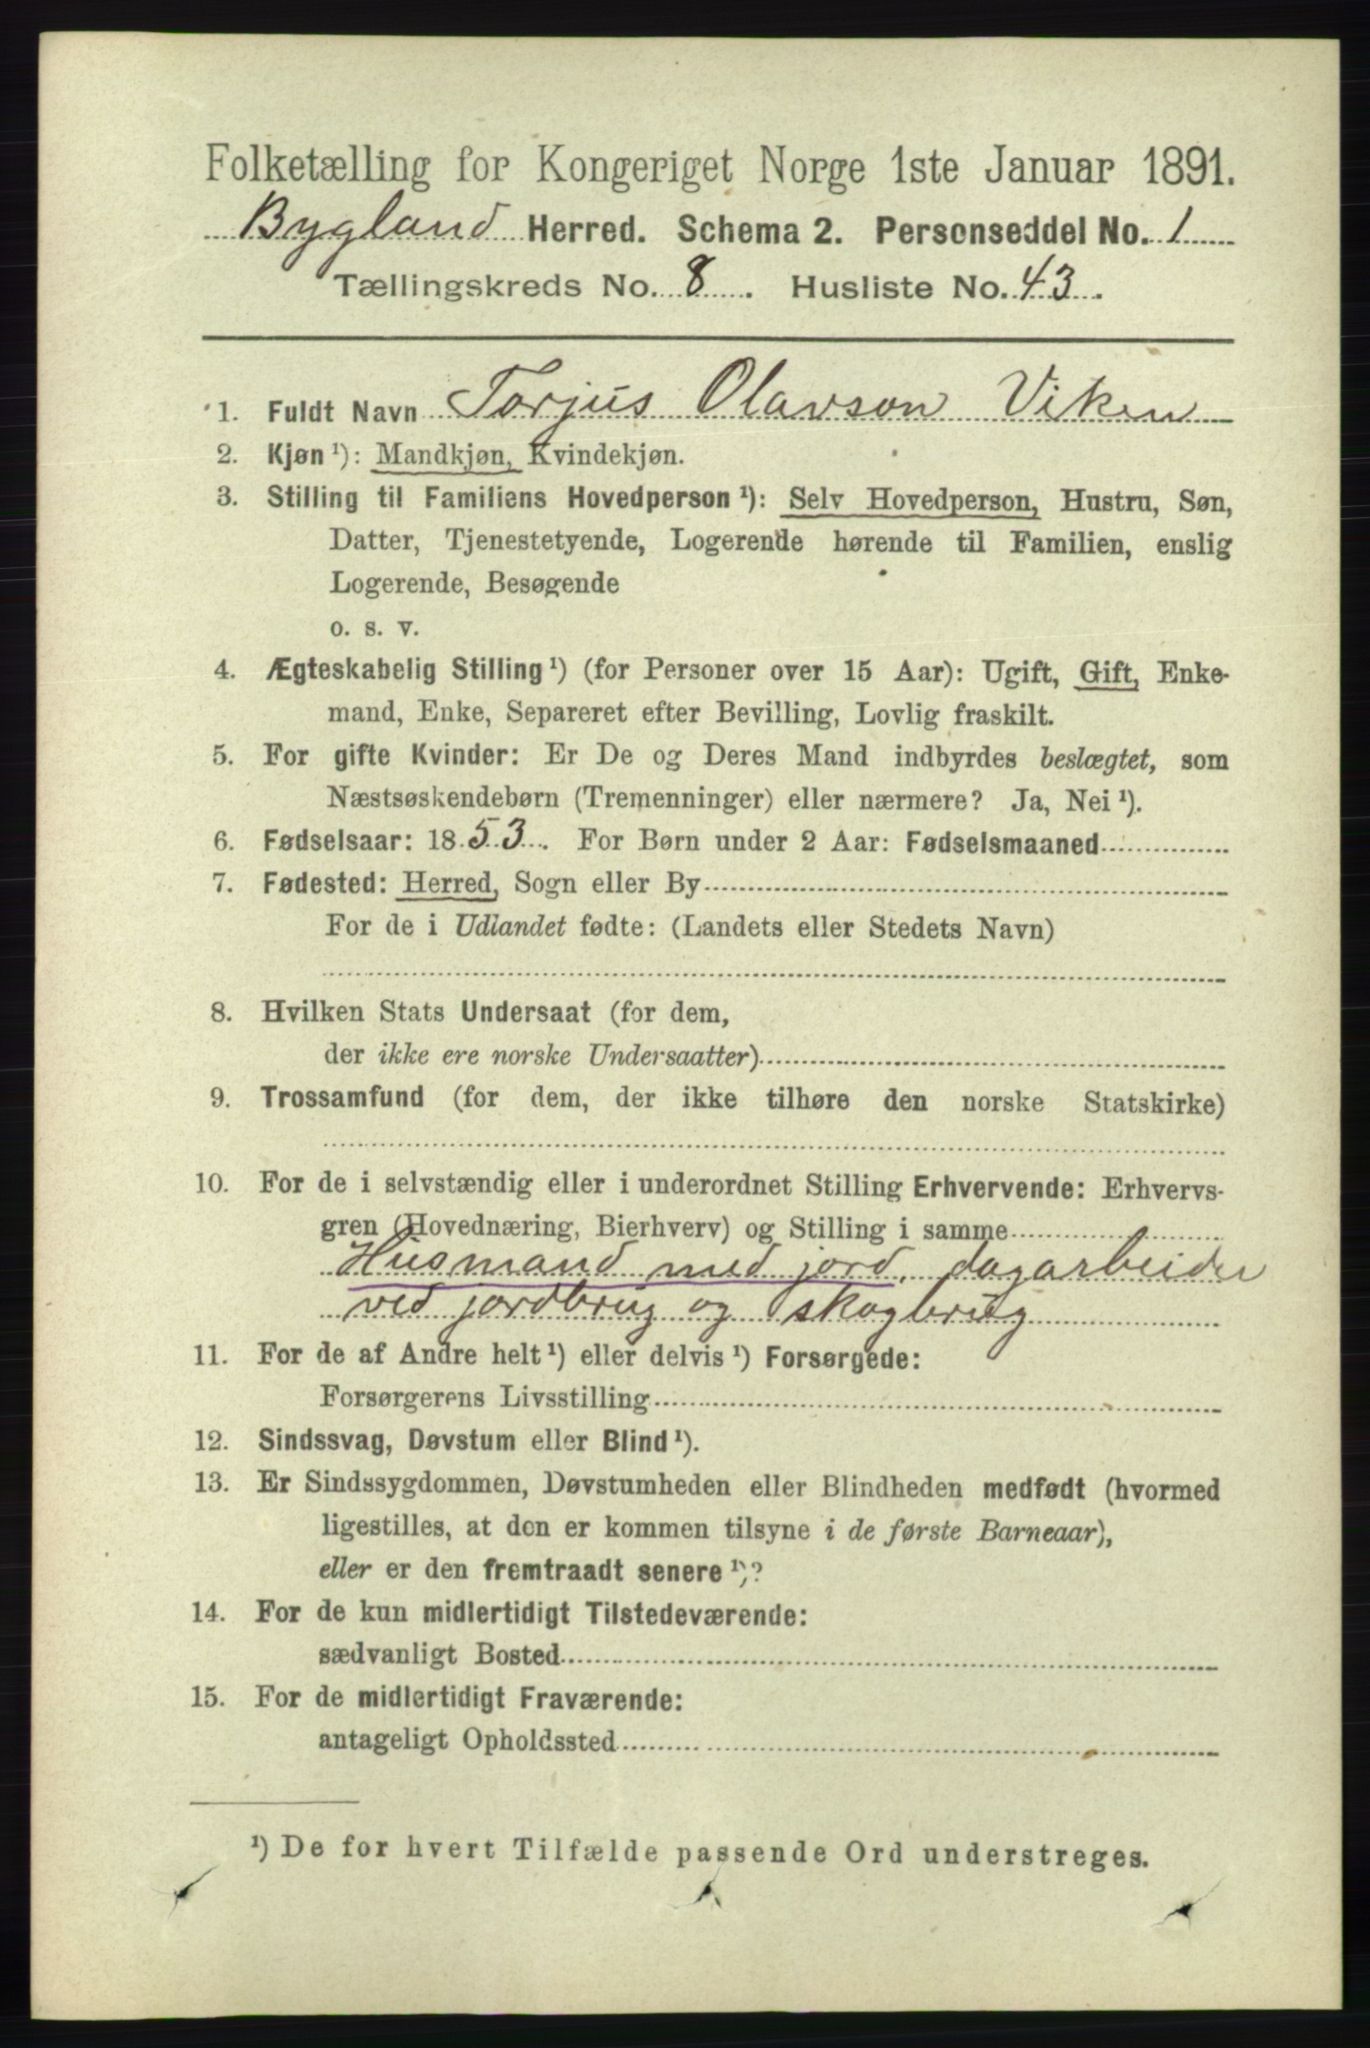 Folketælling for Kongeriget Norge 1ste Januar 1891.
Bygland Herred. Schema 2. Personseddel No. 1
Tællingskreds No. 8. Husliste No. 43.
1. Fuldt Navn Torjus Olavson Viken
2. Kjøn ¹): Mandkjøn, Kvindekjøn.
3. Stilling til Familiens Hovedperson ¹): Selv Hovedperson, Hustru, Søn,
Datter, Tjenestetyende, Logerende hørende til Familien, enslig
Logerende, Besøgende
o. s. v.
4. Ægteskabelig Stilling ¹) (for Personer over 15 Aar): Ugift, Gift, Enke-
mand, Enke, Separeret efter Bevilling, Lovlig fraskilt.
5. For gifte Kvinder: Er De og Deres Mand indbyrdes beslægtet, som
Næstsøskendebørn (Tremenninger) eller nærmere? Ja, Nei ¹).
6. Fødselsaar: 1853. For Børn under 2 Aar: Fødselsmaaned
7. Fødested: Herred, Sogn eller By
For de i Udlandet fødte: (Landets eller Stedets Navn)
8. Hvilken Stats Undersaat (for dem,
der ikke ere norske Undersaatter)
9. Trossamfund (for dem, der ikke tilhøre den norske Statskirke)
10. For de i selvstændig eller i underordnet Stilling Erhvervende: Erhvervs-
gren (Hovednæring, Bierhverv) og Stilling i samme
Husmand med jord, dagarbeider
ved jordbrug og skogbrug
11. For de af Andre helt ¹) eller delvis ¹) Forsørgede:
Forsørgerens Livsstilling
12. Sindssvag, Døvstum eller Blind ¹).
13. Er Sindssygdommen, Døvstumheden eller Blindheden medfødt (hvormed
ligestilles, at den er kommen tilsyne i de første Barneaar),
eller er den fremtraadt senere ¹)?
14. For de kun midlertidigt Tilstedeværende:
sædvanligt Bosted
15. For de midlertidigt Fraværende:
antageligt Opholdssted
¹) De for hvert Tilfælde passende Ord understreges.